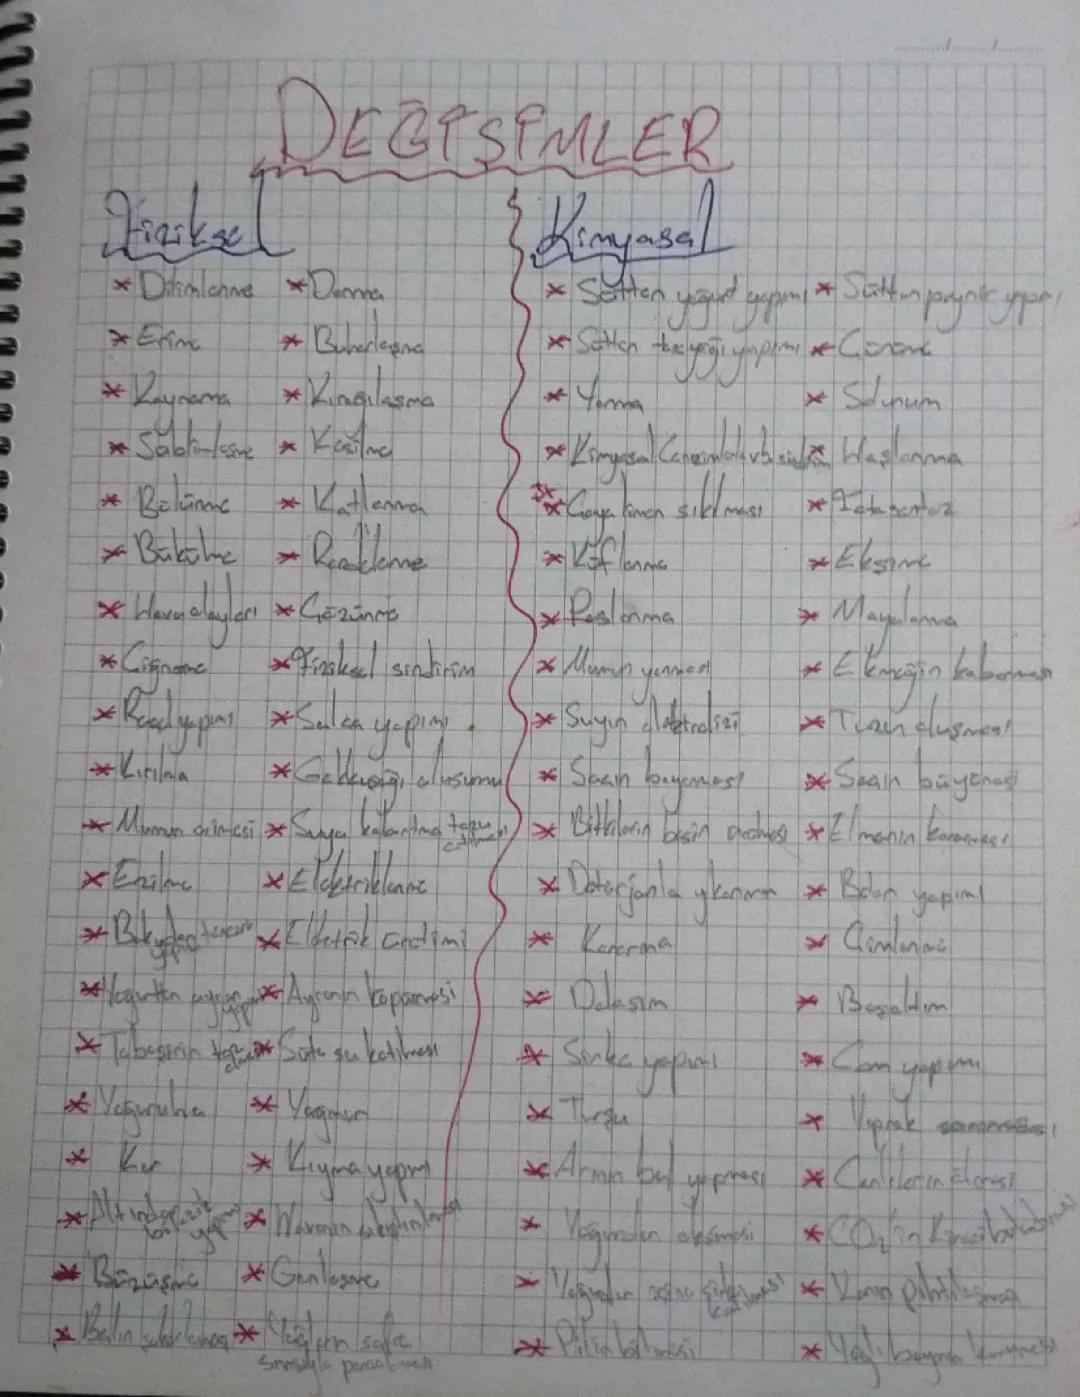 DEĞİŞİMLER
Fiziksel
Kimyasal
* Dilimlenme * Donma
* Erime * Buharlaşma
* Kaynama * Kırağılaşma
* Süblimleşme * Kesilme
* Bölünme * Katlanma
* Bükülme * Renklenme
* Hava olayları * Çözünme
* Çiğneme * Fiziksel sindirim
* Reçel yapımı * Salça yapımı
* Kırılma * Gökkuşağı oluşumu
* Mumun erimesi * Suya kolonya tozu
* Ezilme * Elektriklenme
* Bakırdan tencere yapımı * Elektrik üretimi
* Yoğurttan ayran yapımı * Ayranın köpürmesi
* Tebeşirin toz * Süte su katılması
* Yoğurulma * Yağmur
* Kar * Kıyma yapımı
* Altından bilezik yapımı * Havanın
* Büzüşme * Genleşme
* Balın şekerlenmesi * Yağların safra
sıvısıyla parçalanması
* Sütten yoğurt yapımı * Sütten peynir yapımı
* Sütten tereyağı yapımı * Çürüme
* Yanma * Solunum
* Kimyasal * Haşlanma
* Çaya limon sıkılması * Fotosentez
* Küflenme * Ekşime
* Paslanma * Mayalanma
* Mumun yanması * Ekmeğin kabarması
* Suyun elektrolizi * Tuzun oluşması
* Saçın boyanması * Saçın büyümesi
* Bitkilerin besin üretmesi * Elmanın kararması
* Deterjanla yıkanma * Beton yapımı
* Kararma * Çimlenme
* Dolaşım * Boşaltım
* Sirke yapımı * Cam yapımı
* Turşu * Yaprak sararması
* Arının bal yapması * Canlıların ölmesi
* Yoğurdun ekşimesi * CO₂'in
* Yoğurdun * Kanın pıhtılaşması
* Pilin bitmesi * Yağlı boyanın kuruması